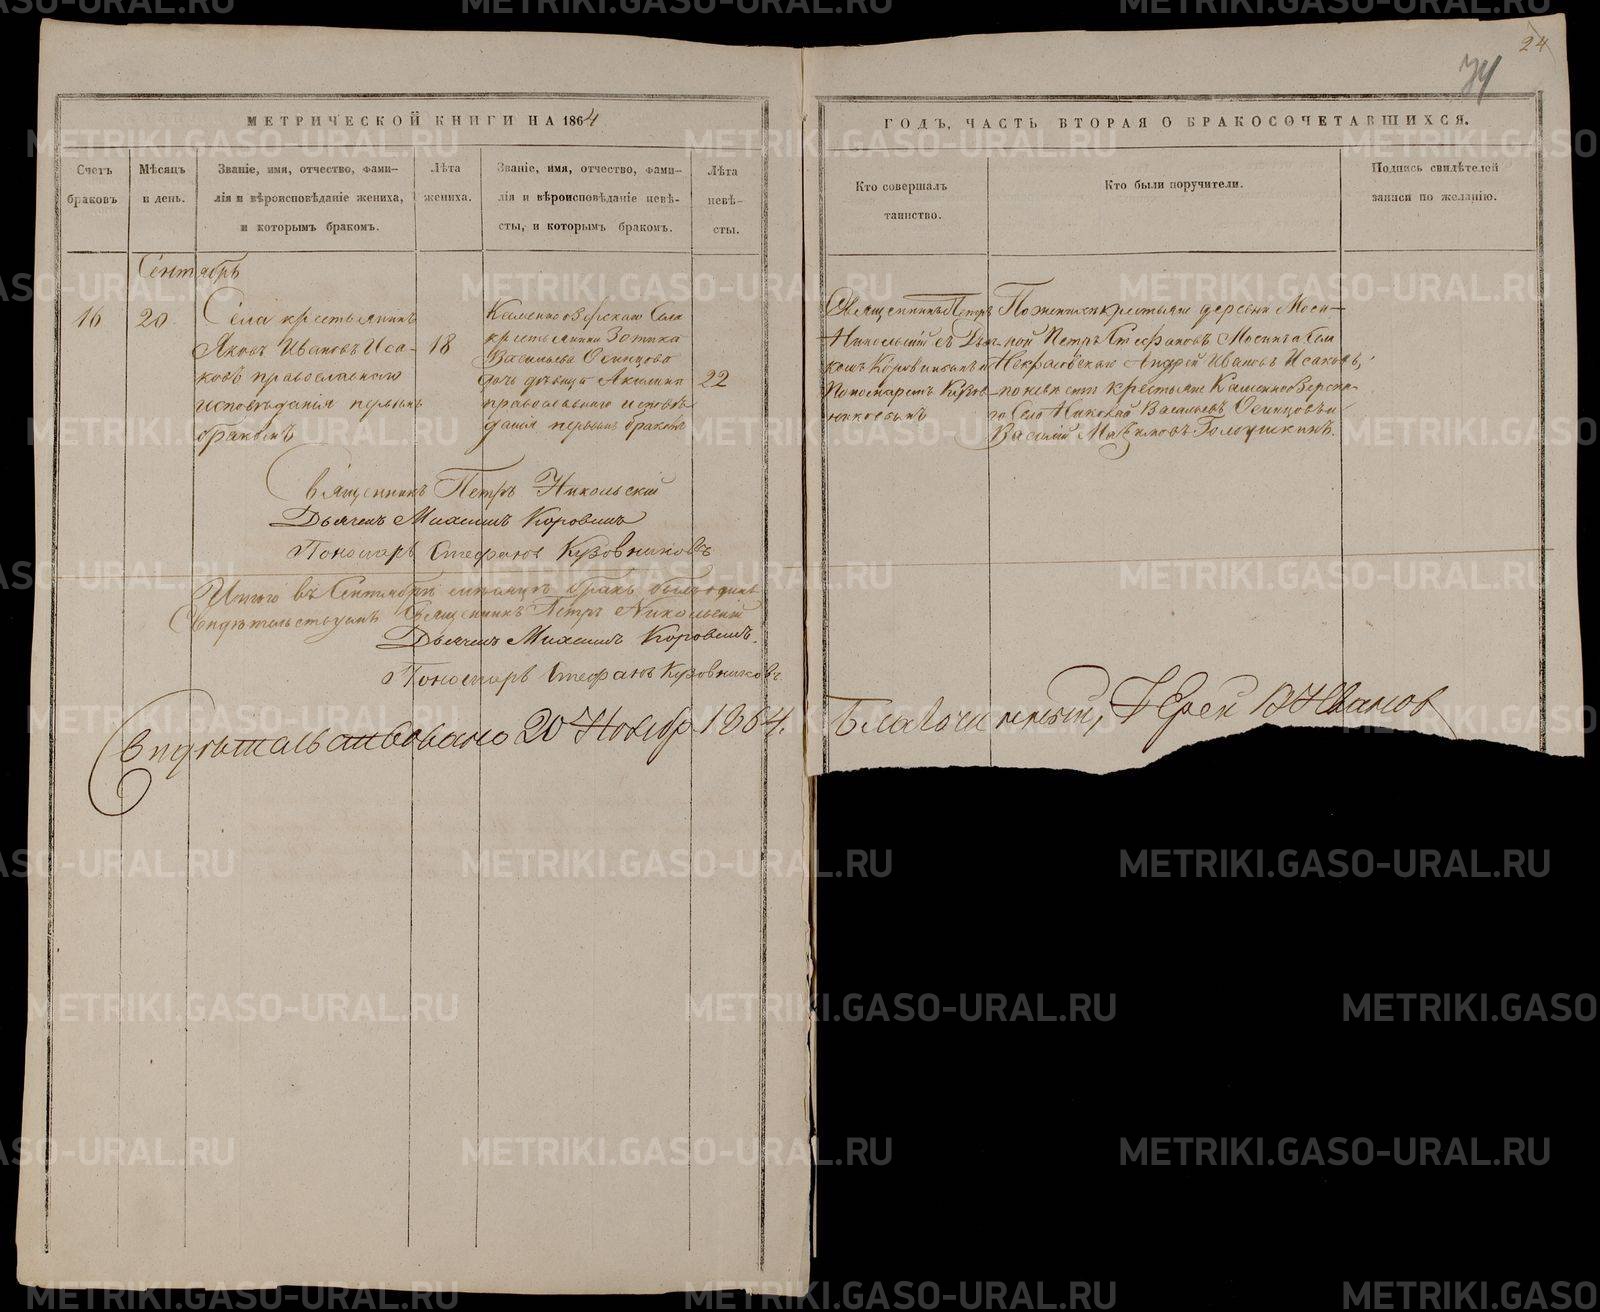 24
74
МЕТРИЧЕСКОЙ КНИГИ НА 1864
ГОДЪ, ЧАСТЬ ВТОРАЯ О БРАКОСОЧЕТАВШИХСЯ.
Счетъ
браковъ
Мѣсяцъ
и день.
Званіе, имя, отчество, фами-
лія и вѣроисповѣданіе жениха,
и которымъ бракомъ.
Лѣта
жениха.
Званіе, имя, отчество, фами-
лія и вѣроисповѣданіе невѣ-
сты, и которымъ бракомъ.
Лѣта
невѣ-
сты.
Кто совершалъ
таинство.
Кто были поручители.
Подпись свидѣтелей
записи по желанію.
Сентябрь
16
20
Села крестьянинъ
Яковъ Ивановъ Иса-
ковъ православнаго
исповѣданія первымъ
бракомъ
18
Каменноозерскаго Села
крестьянина Зотика
Васильева Осинцова
дочь дѣвица Акилина
православнаго исповѣ
данія первымъ бракомъ
22
Священникъ Петръ
Никольскій съ Дьяч-
комъ Коровинымъ и
Пономаремъ Кузов
никовымъ
По женихѣ крестьяне деревни Моси-
ной Петръ Стефановъ Мосинъ а Села
Некрасовскаго Андрей Ивановъ Исаковъ;
по невѣстѣ крестьяне Каменноозерска-
го Села Николай Васильевъ Осинцовъ и
Василій Максимовъ Голоушкинъ.
Священникъ Петръ Никольскій
Дьячекъ Михаилъ Коровинъ
Пономарь Стефанъ Кузовниковъ
Итого въ Сентябрѣ мѣсяцѣ бракъ былъ одинъ
Свидѣтельствуемъ Священникъ Петръ Никольскій
Дьячекъ Михаилъ Коровинъ.
Пономарь Стефанъ Кузовниковъ.
Свидѣтельствовано 20 Ноябр. 1864.
Благочинный, Іерей В Ивановъ
METRIKI.GASO-URAL.RU